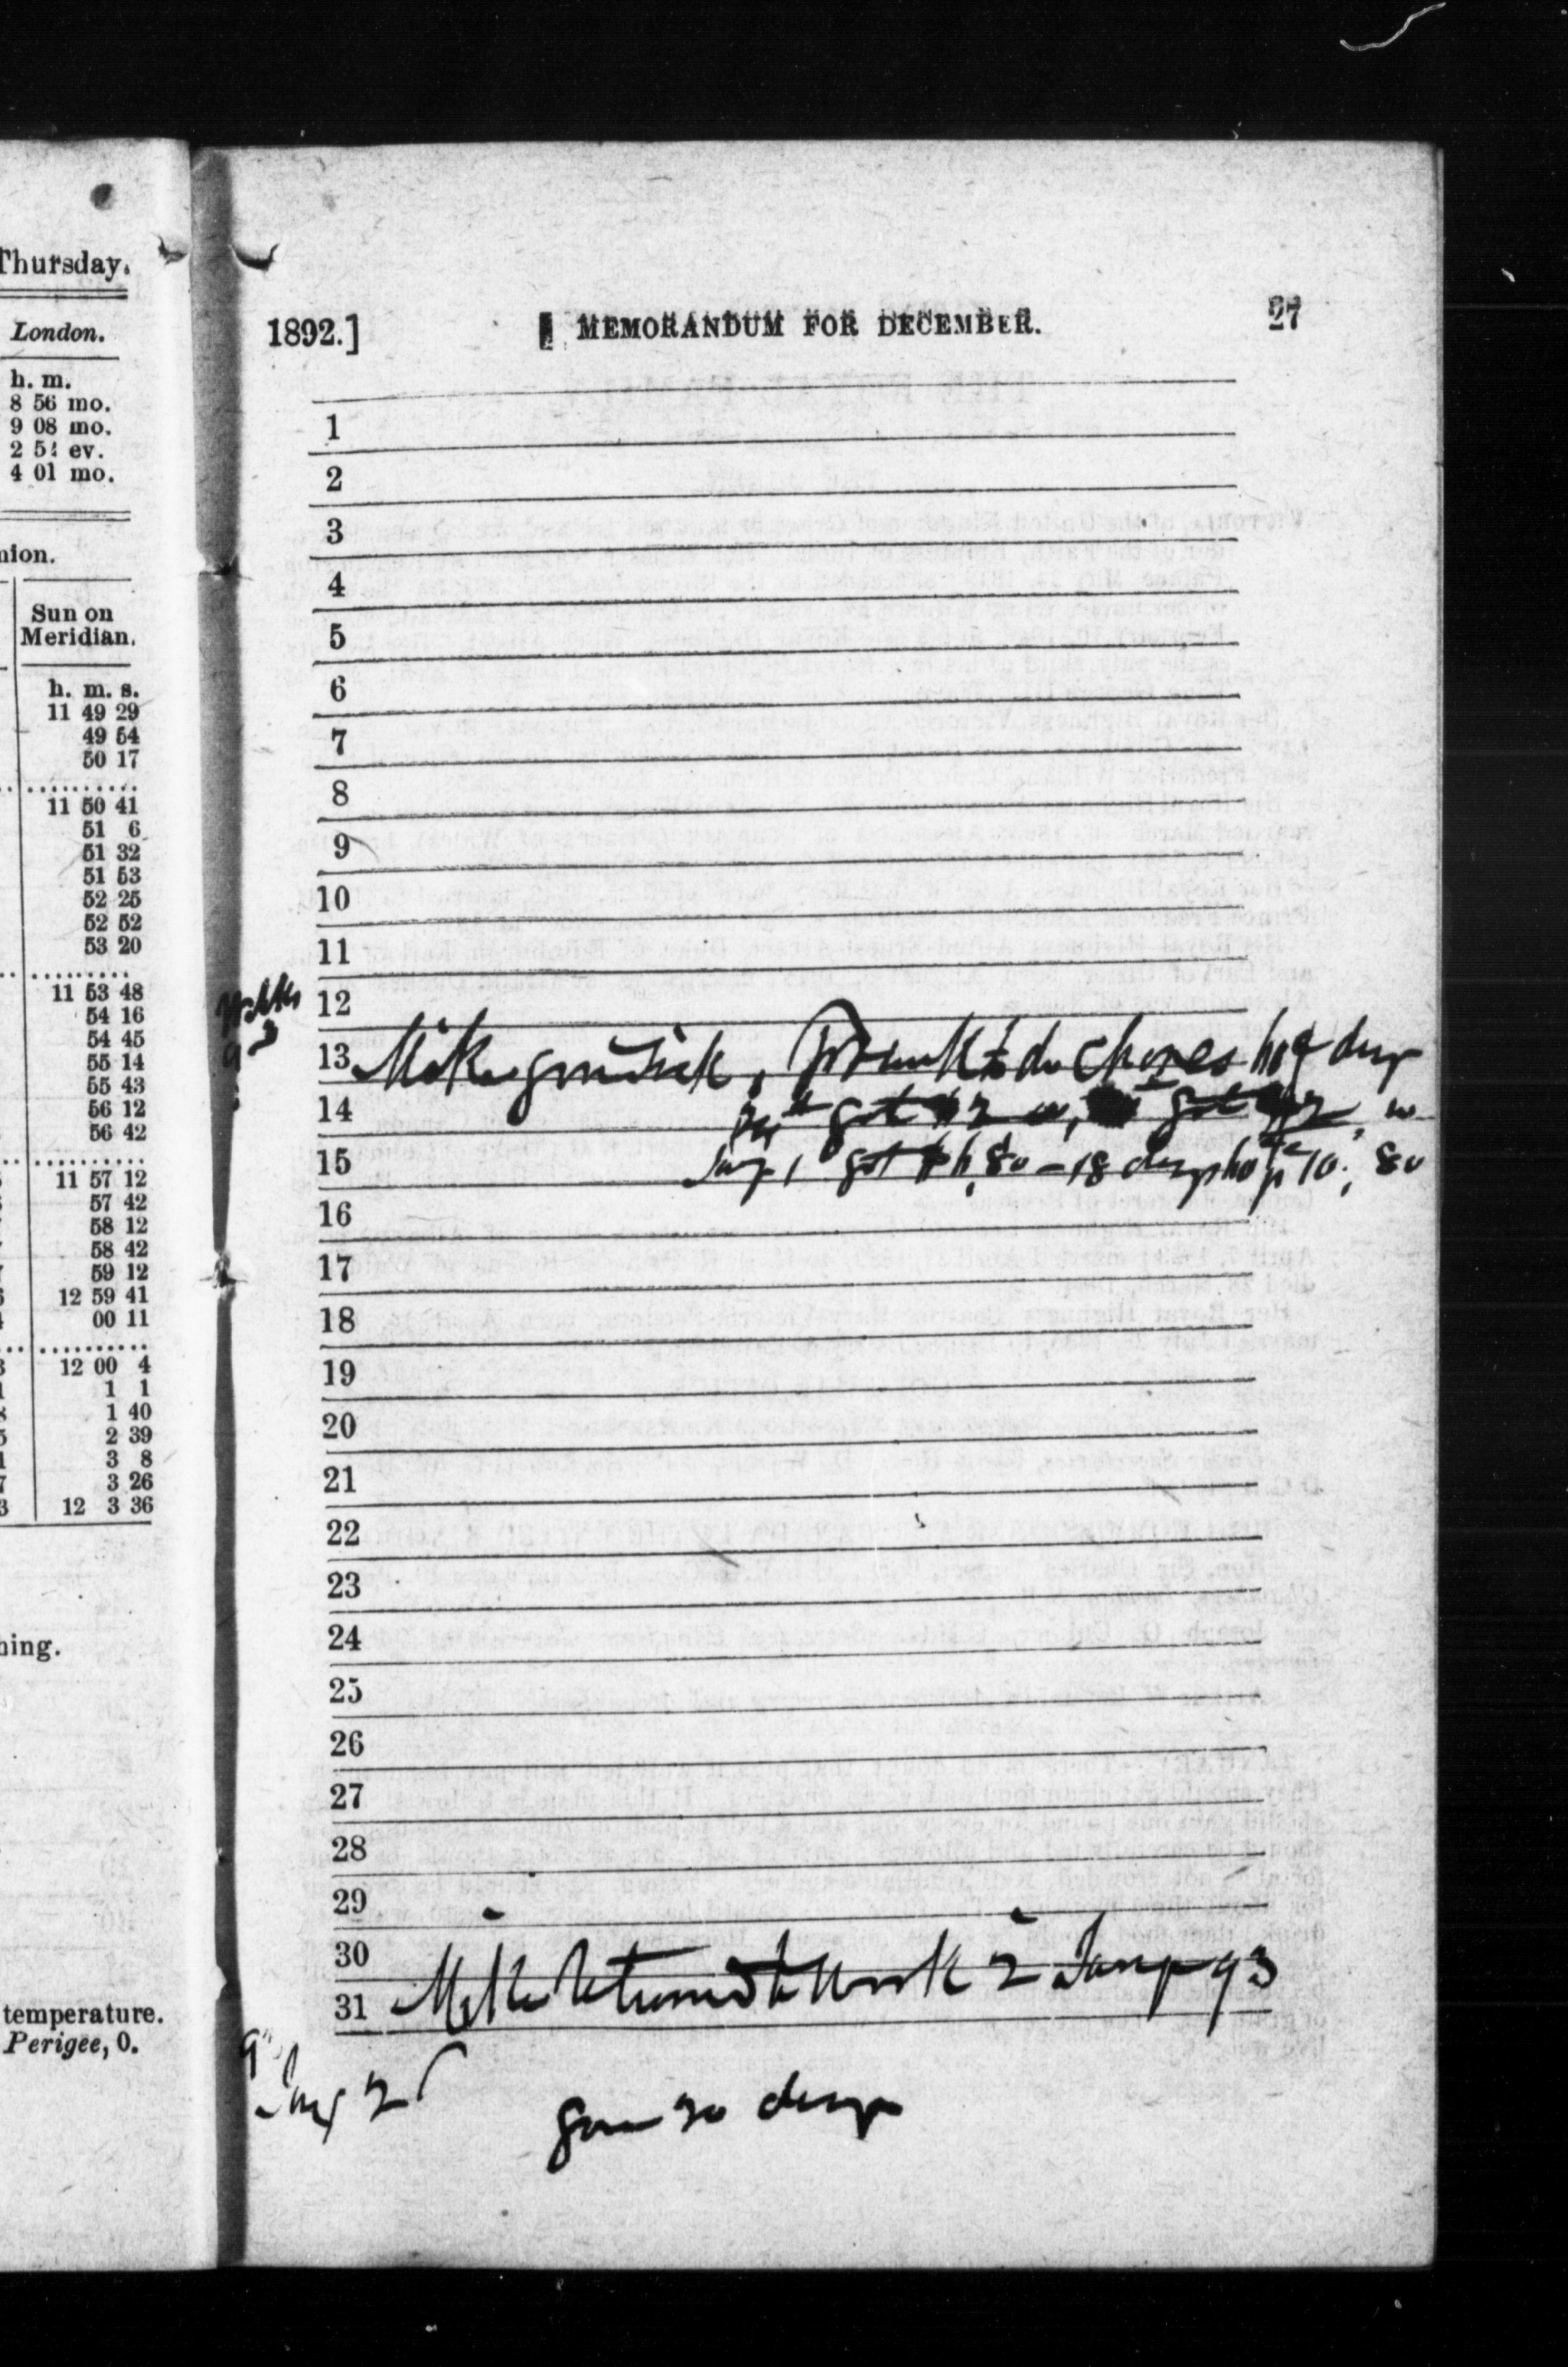 Thursday.
London.
h. m.
8 56 mo.
9 08 mo.
2 5 ev.
4 01 mo.
nion.
Sun on
Meridian.
h. m. s.
11 49 29
49 54
50 17
11 50 41
51 6
51 32
51 53
52 25
52 52
53 20
11 53 48
54 16
54 45
55 14
55 43
56 12
56 42
11 57 12
57 42
58 12
58 42
59 12
12 59 41
00 11
12 00 4
1 1
1 40
2 39
3 8
3 26
12 3 36
hing.
temperature.
Perigee, 0.
1892.] MEMORANDUM FOR DECEMBER. 27
1
2
3
4
5
6
7
8
9
10
11
12
13 Mike sick, to do chores days
14 got 2
15 Jany 1 got 80 = 18 days 80
16
17
18
19
20
21
22
23
24
25
26
27
28
29
30
31 Mike returned to work 2 Jany 93
Jany 2
gone 20 days